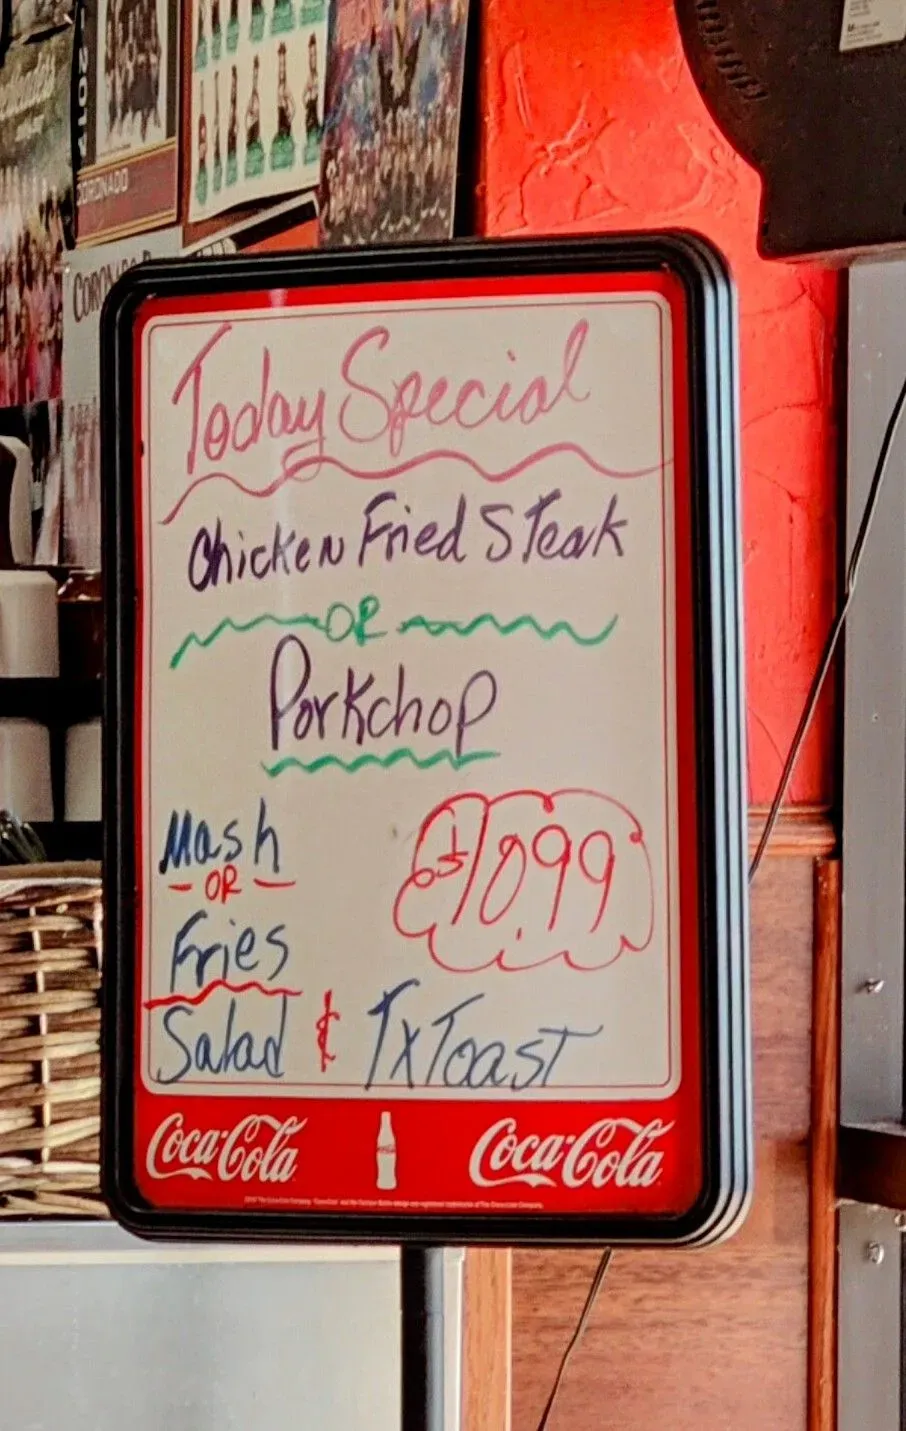 CORONADO
CORONADO
Today Special
Chicken Fried STeak
OR
Porkchop
Mash
OR
Fries
$10.99
Salad & TxToast
Coca-Cola
Coca-Cola